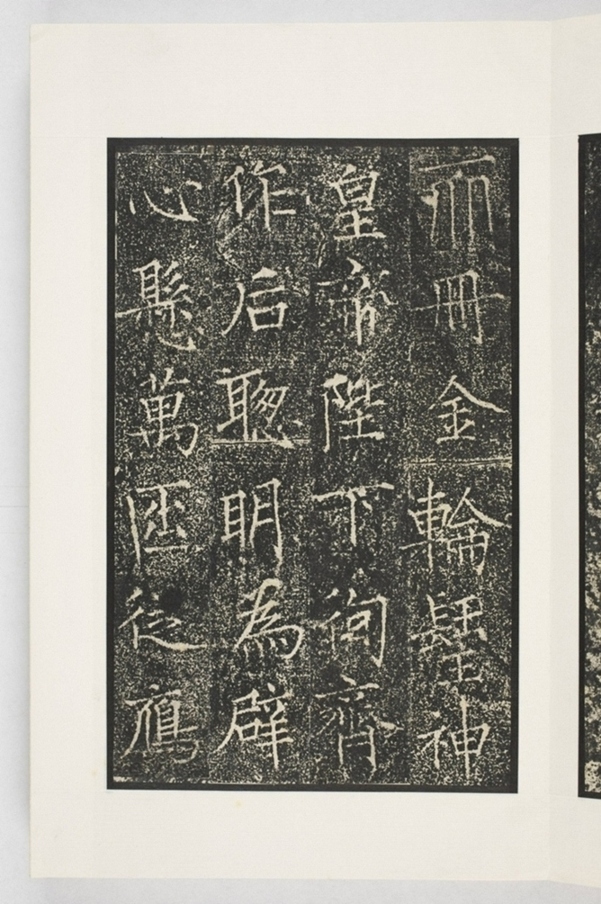 而冊金輪𨲢神
皇帝陛下徇齊
作后聰明為辟
心懸萬從